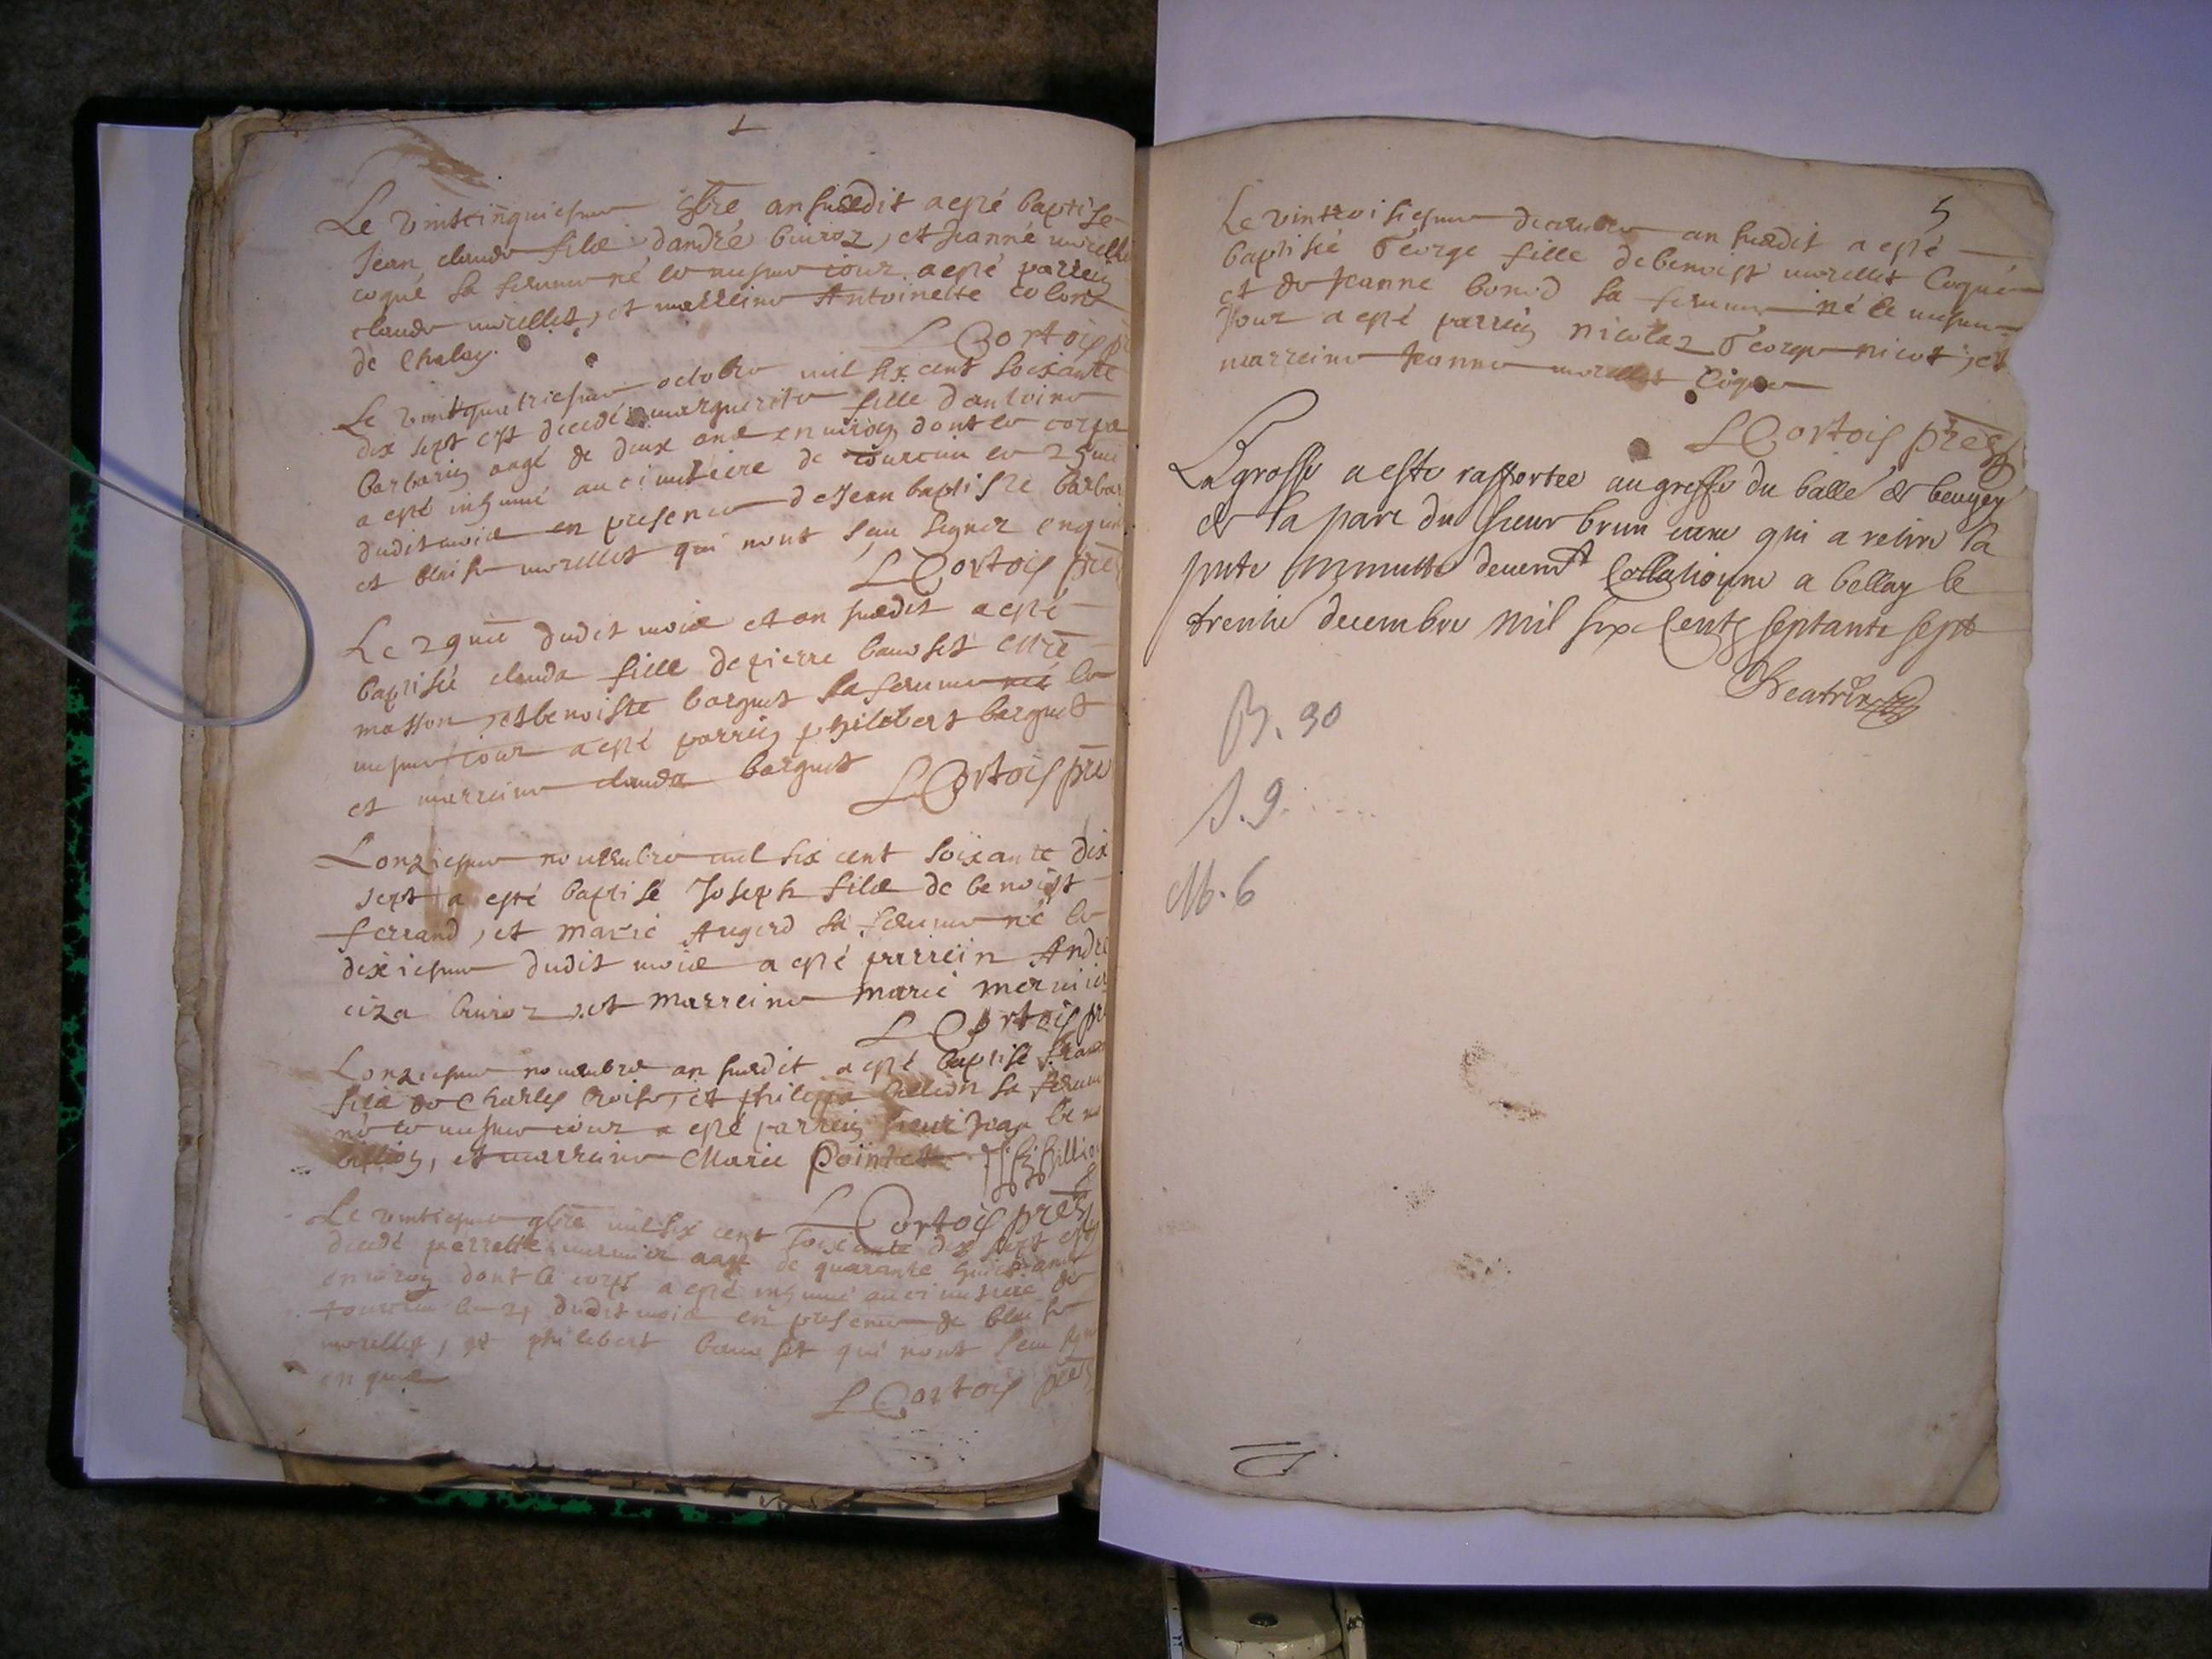 Le vintcinquiesme 8bre an susdit a esté baptisé
Jean claude filz dandré buiroz, et Jeanne morellet
coque sa femme né le mesme iour a esté parrein
claude morellet, et marreine Antoinette colon
de Chaley.
L Cortois pr
Le vintquatriesme octobre mil six cent soixante
dix sept est decedé marguerite fille dantoine
barbarin aagé de deux ans enuiron dont le corps
a esté inhumé au cimetiere de tourcin le 25me
dudit mois en presence de Jean baptiste barbar
et blaise morellet qui nont sceu signer enquis
L Cortois pre
Le 29me dudit mois et an susdit a esté
baptisée clauda fille de pierre bauset
masson, et benoiste barguet sa femme née le
mesme iour a esté parrein philibert barguet
et marreine clauda barguet
L Cortois pre
Lonziesme nouembre mil six cent soixante dix
sept a esté baptisé Joseph filz de benoist
ferrand, et marie Augerd sa femme né le
dixiesme dudit mois a esté parrein André
ciza buiroz, et marreine marie mermier
L Cortois pr
Lonziesme nouembre an susdit a esté baptisé
filz de Charles et philippa sa femme
né le mesme iour a esté parrein sieur Jean
billion, et marreine Marie Pointet Billion
L Cortois pre
Le vintiesme 9bre mil six cent soixante dix sept est
decedé perrette mermier aagé de quarante huict ans
enuiron dont le corps a esté inhumé au cimetiere de
tourcin le 21 dudit mois en presence de blaise
morellet, et philibert bauset qui nont sceu sign
enquis
L Cortois pre
5
Le vintroisiesme decembre an susdit a esté
baptisée George fille de benoist morellet Coque
et de Jeanne bonod sa femme né le mesme
Jour a esté parrein nicolas George nicot, et
marreine Jeanne morellet Coque
L Cortois pre
La grosse a esté raportee au greffe du balle de beugey
de la part du sieur brun cure qui a retire la
pnte minutte deuemt Collationne a bellay le
trente decembre mil six Cents septante sept
B. 30
S. 9.
M. 6